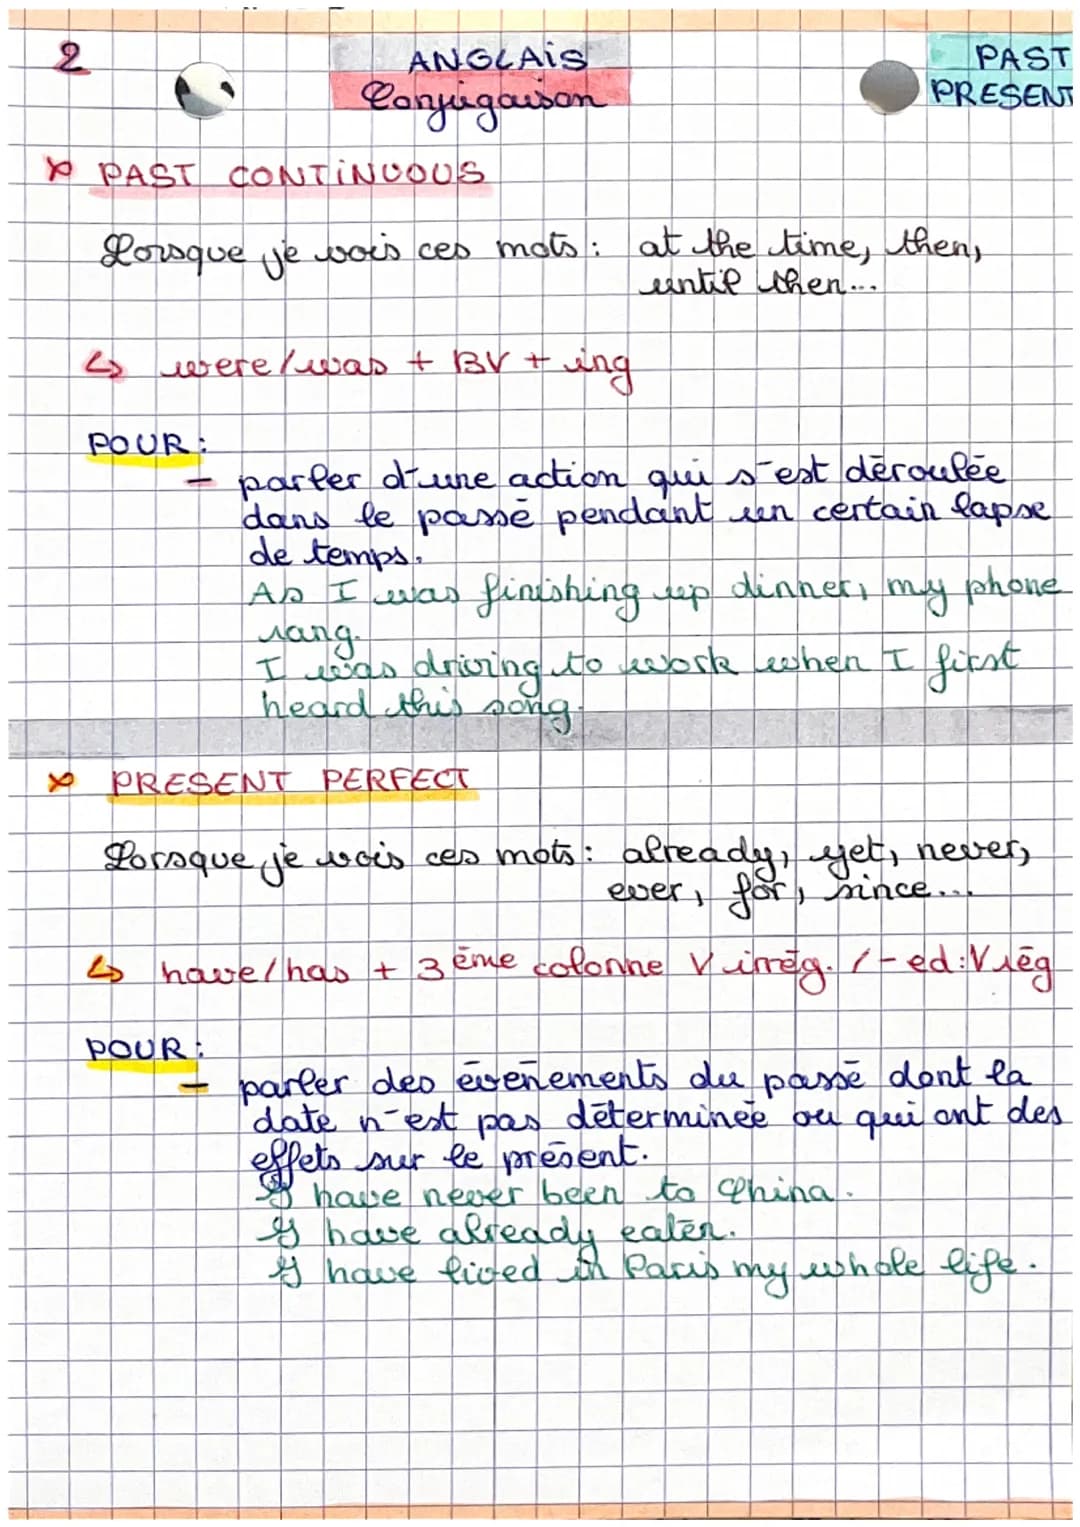 2
ANGLAiS
Conjugaison
PAST
PRESENT
PAST CONTiNUOUS
Lorsque je vois ces mots : at the time, then,
until then...
↳ were/was + BV + ing
POUR :
- parler d'une action qui s'est déroulée
dans le passé pendant un certain lapse
de temps.
As I was finishing up dinner, my phone
rang.
I was driving to work when I first
heard this song.
PRESENT PERFECT
Lorsque je vois ces mots : already, yet, never,
ever, for, since...
↳ have/has + 3ème colonne V irrég. / -ed : V rég
POUR :
- parler des événements du passé dont la
date n'est pas déterminée ou qui ont des
effets sur le présent.
I have never been to China.
I have already eaten.
I have lived in Paris my whole life.